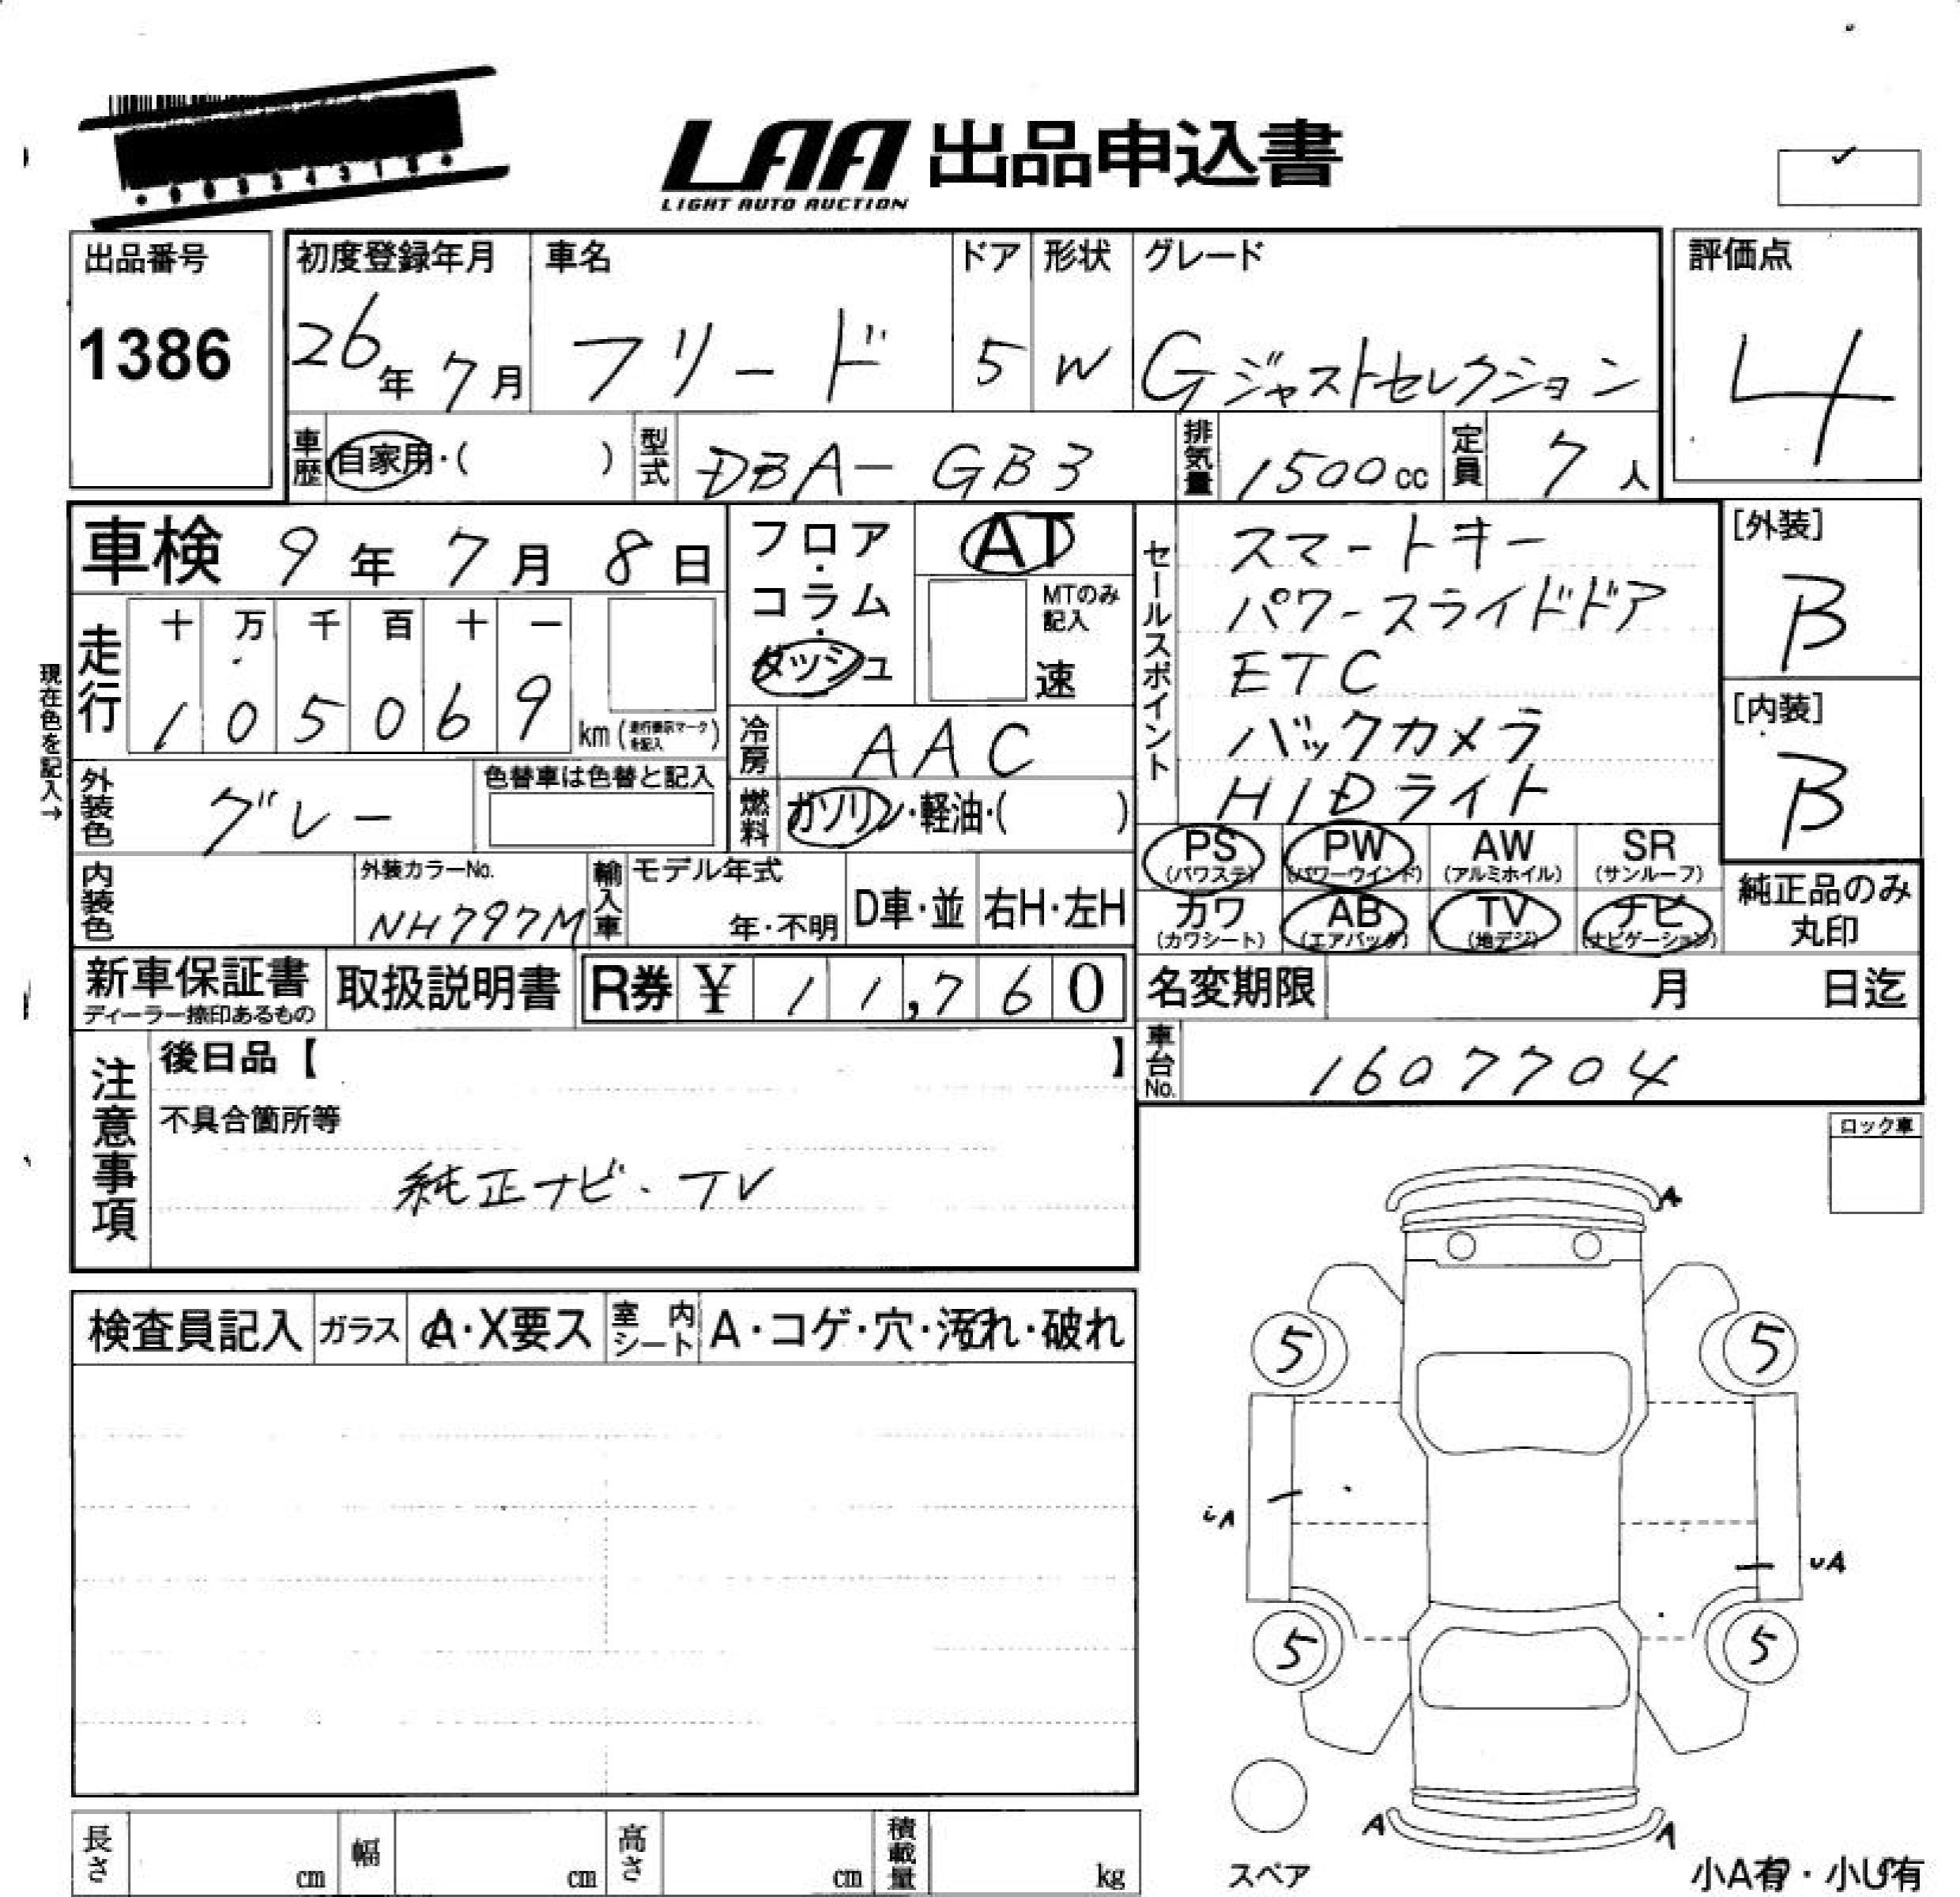 LAA 出品申込書
LIGHT AUTO AUCTION
出品番号
1386
初度登録年月
26年 7月
車名
フリード
ドア
5
形状
W
グレード
Gジャストセレクション
評価点
4
車歴 自家用・( )
型式 DBA-GB3
排気量 1500cc
定員 7人
車検 9年 7月 8日
走行
十 万 千 百 十 一
1 0 5 0 6 9 km (走行表示マークを記入)
現在色を記入→
外装色 グレー
色替車は色替と記入
内装色
外装カラーNo.
NH797M
フロア・コラム・ダッシュ
AT
MTのみ記入
速
冷房 AAC
燃料 ガソリン・軽油・( )
輸入車 モデル年式
年・不明
D車・並
右H・左H
セールスポイント
スマートキー
パワースライドドア
ETC
バックカメラ
HIDライト
[外装]
B
[内装]
B
PS (パワステ)
PW (パワーウインド)
AW (アルミホイル)
SR (サンルーフ)
カワ (カワシート)
AB (エアバック)
TV (地デジ)
ナビ (ナビゲーション)
純正品のみ
丸印
新車保証書
ディーラー捺印あるもの
取扱説明書
R券 ¥ 11,760
名変期限 月 日迄
車台No. 1607704
注意事項
後日品【 】
不具合箇所等
純正ナビ・TV
ロック車
検査員記入
ガラス A・X要ス
室内シート A・コゲ・穴・汚れ・破れ
A
5
5
A
A
5
5
A
A
スペア
小A有・小U有
長さ cm
幅 cm
高さ cm
積載量 kg